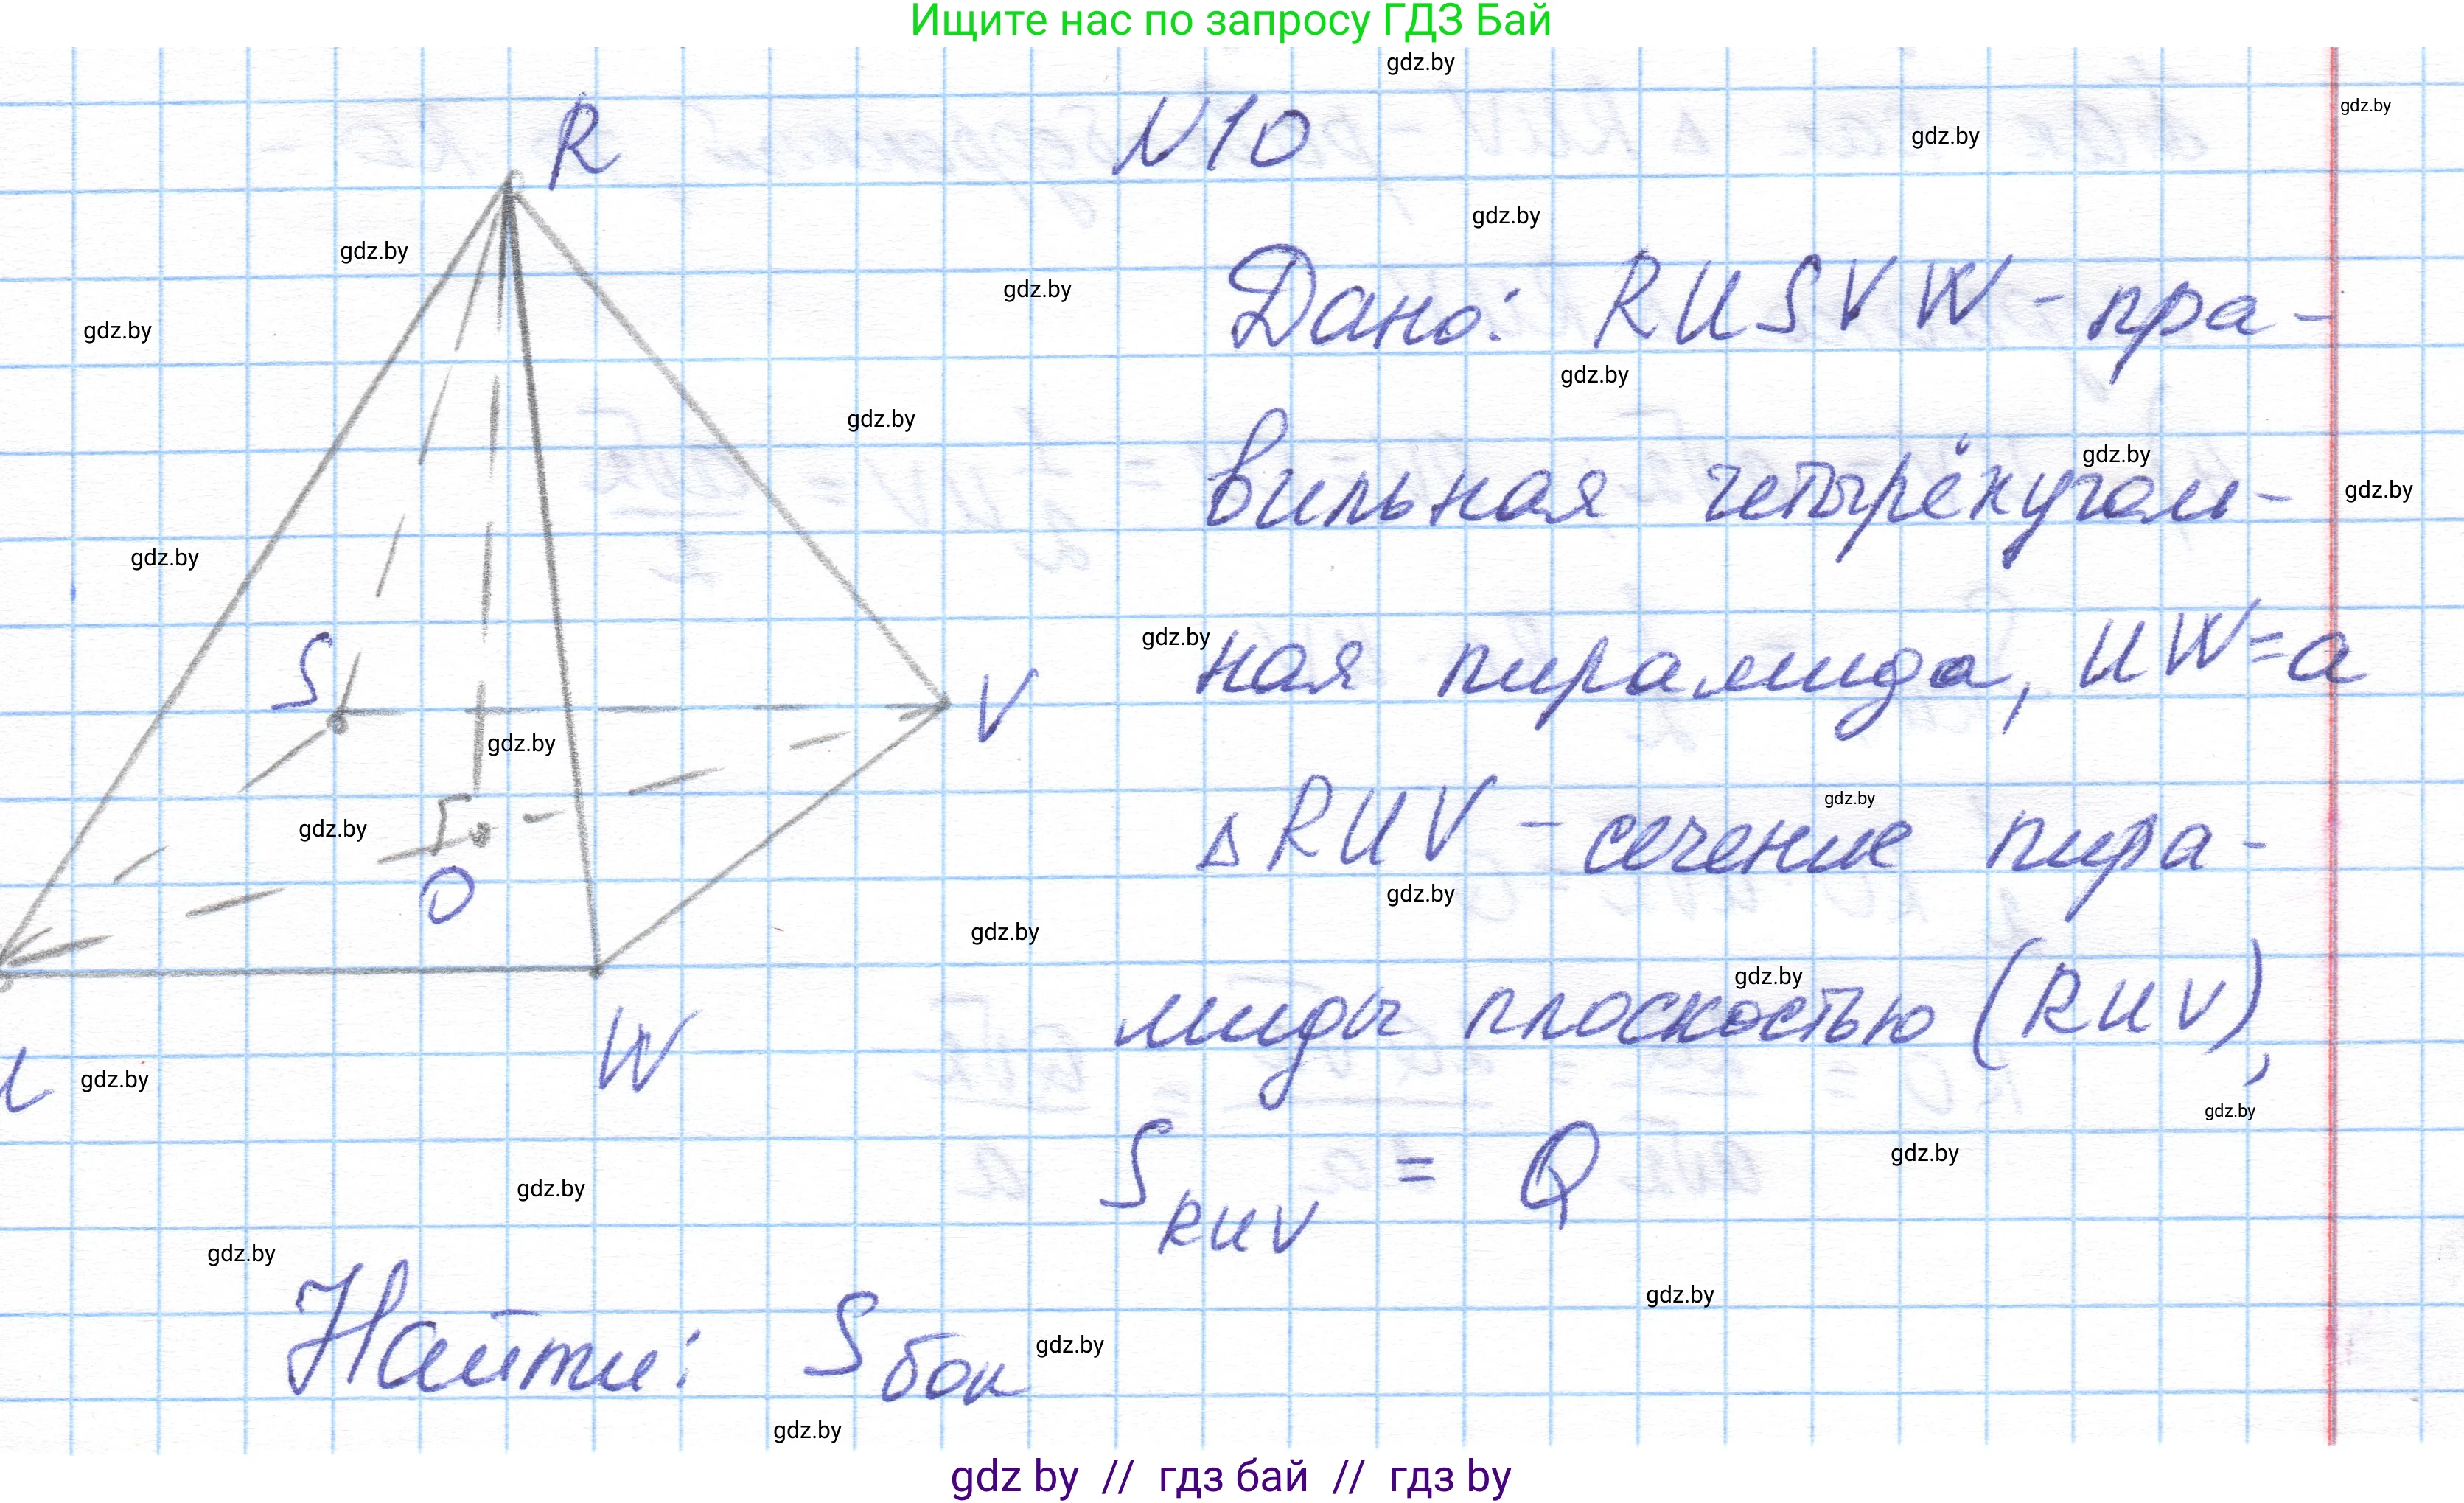 Ищите нас по запросу ГДЗ Бай
gdz.by
R
N10
gdz.by
gdz.by
gdz.by
gdz.by
gdz.by
Дано: RUSVW - пра-
gdz.by
gdz.by
gdz.by
вильная четырёхуголь-
gdz.by
gdz.by
gdz.by
S
gdz.by
ная пирамида, UW=a
V
gdz.by
gdz.by
O
∆RUV - сечение пира-
gdz.by
gdz.by
gdz.by
gdz.by
W
gdz.by
миды плоскостью (RUV),
gdz.by
gdz.by
S RUV = Q
gdz.by
gdz.by
gdz.by
Найти: Sбок
gdz.by
gdz.by
gdz by // гдз бай // гдз by